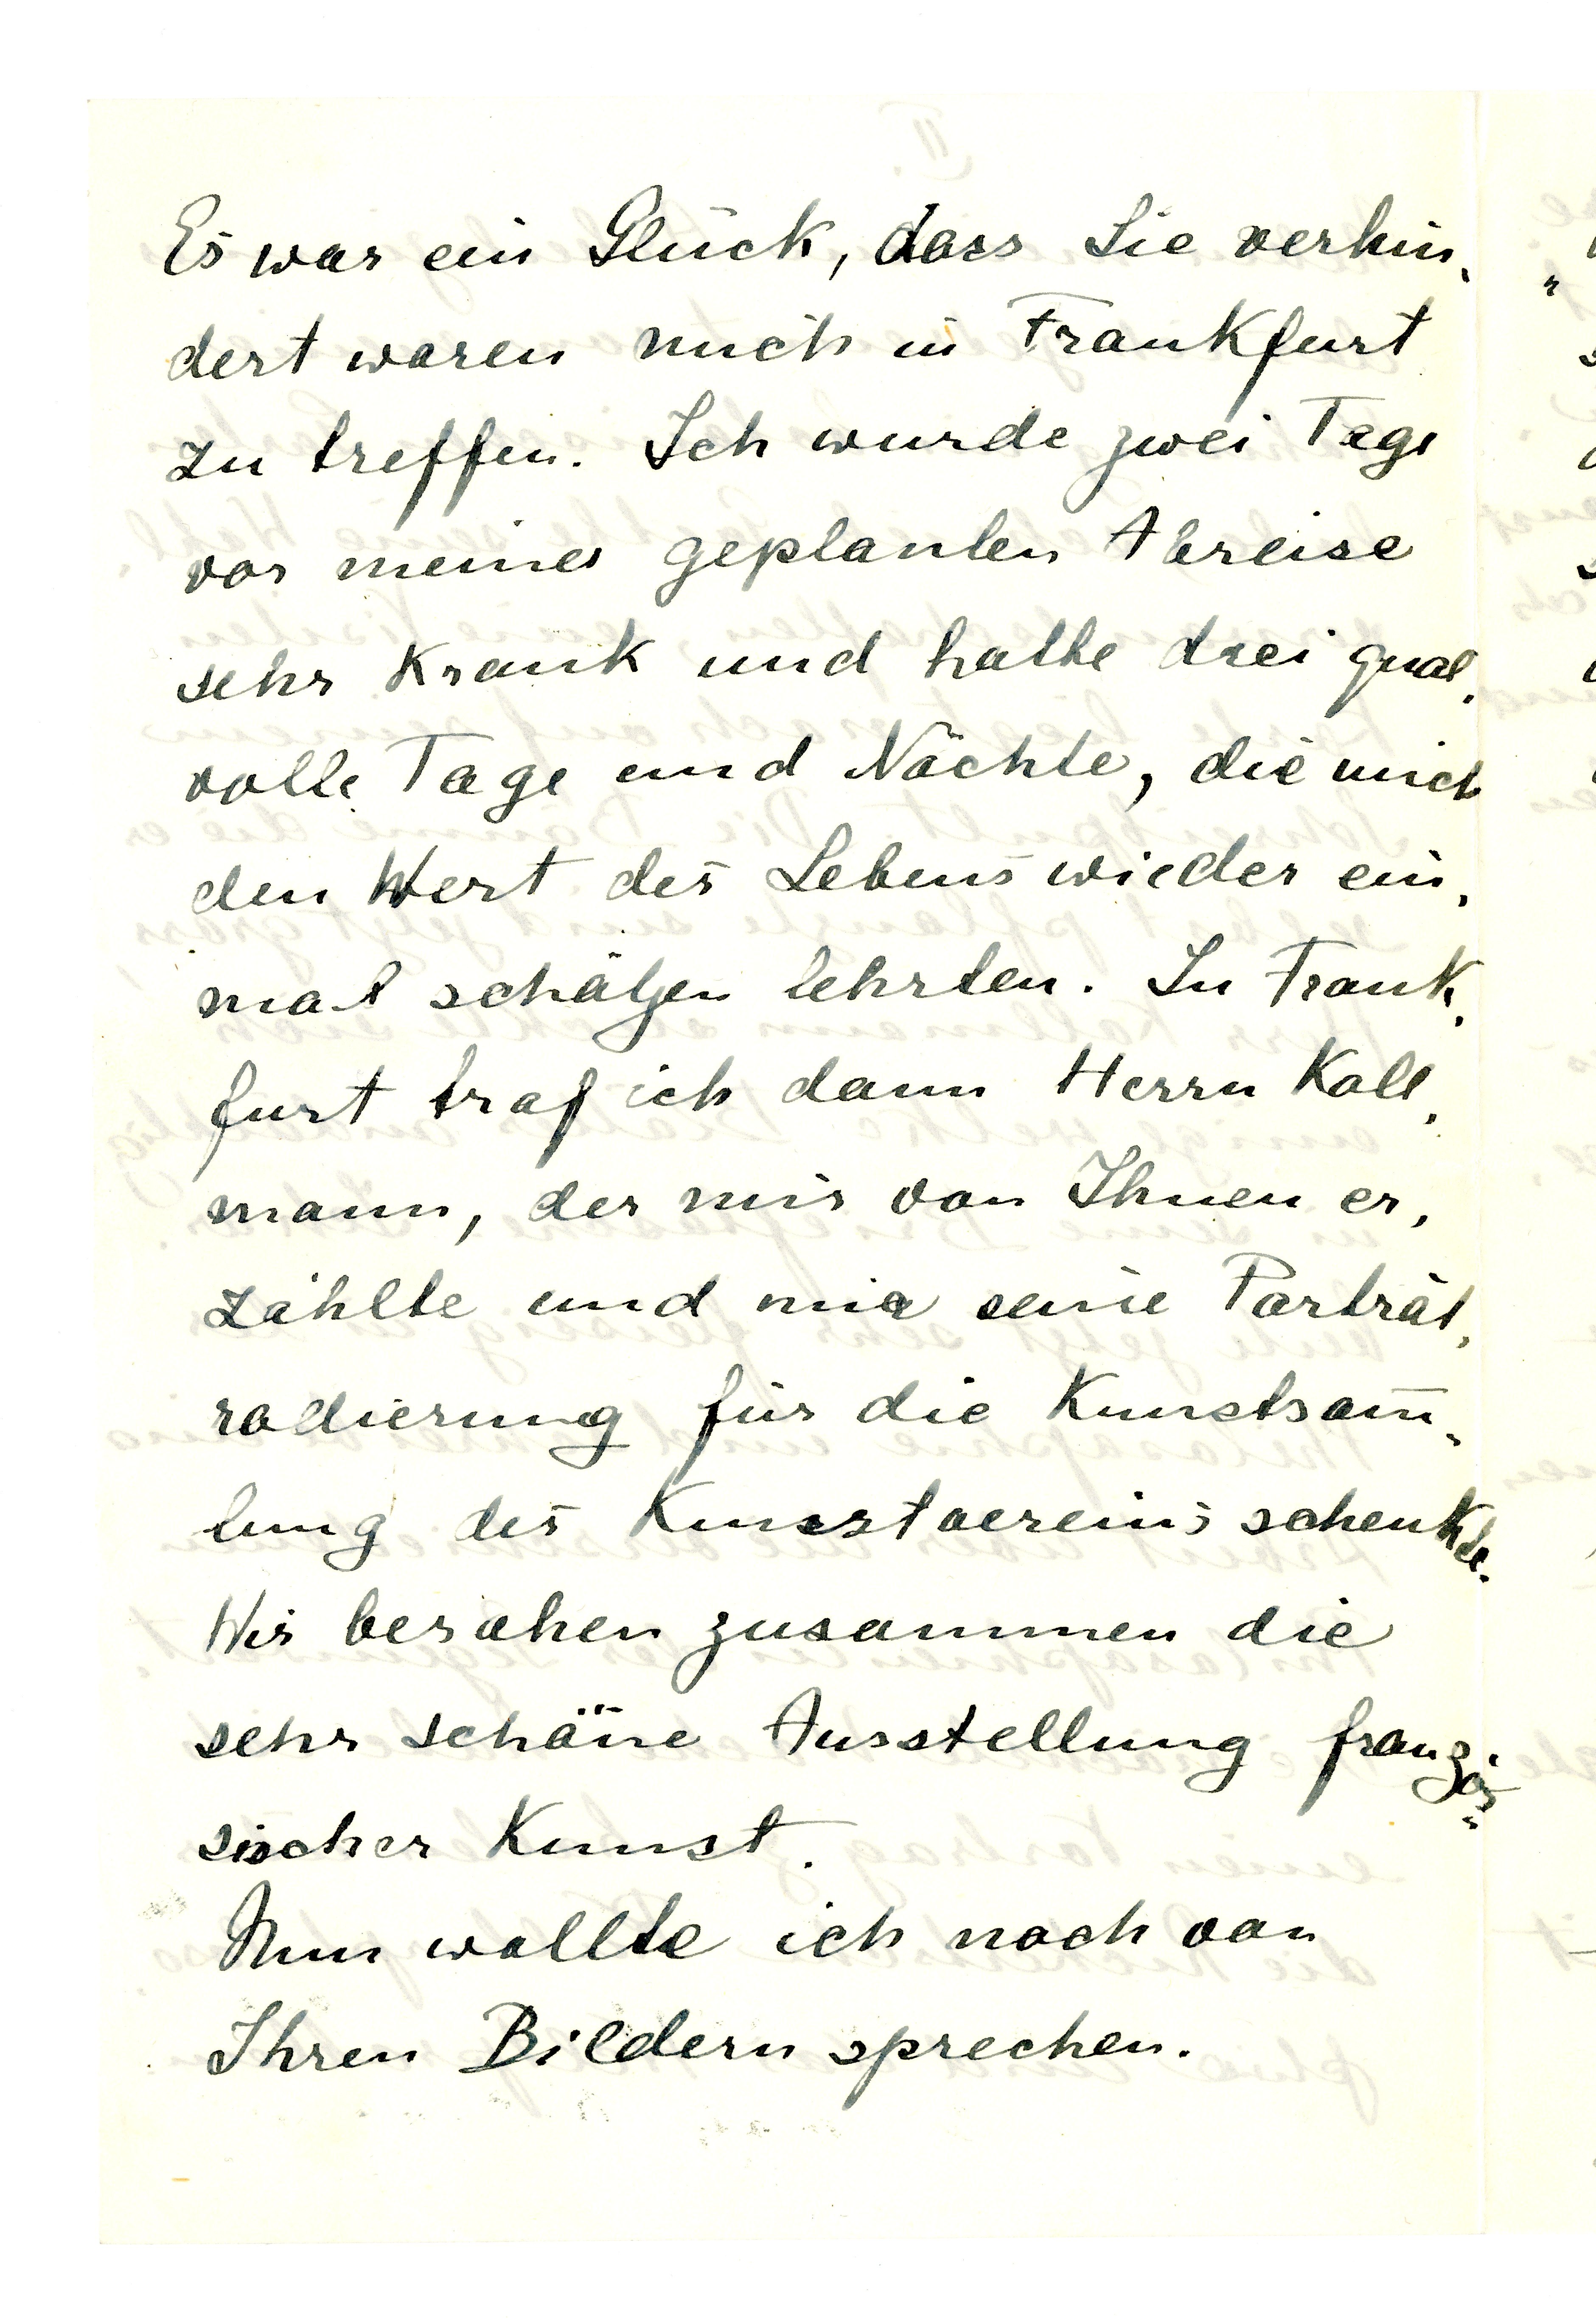 Es war ein Glück, dass Sie verhin-
dert waren mich in Frankfurt
zu treffen. Ich wurde zwei Tage
vor meiner geplanten Abreise
sehr krank und hatte drei qual-
volle Tage und Nächte, die mich
den Wert des Lebens wieder ein-
mal schätzen lehrten. In Frank-
furt traf ich dann Herrn Koll-
mann, der mir von Ihnen er-
zählte und mir seine Porträt-
radierung für die Kunstsam̄-
lung des Kunstvereins schenkte.
Wir besahen zusammen die
sehr schöne Ausstellung franzö-
sischer Kunst.
Nun wollte ich noch von
Ihren Bildern sprechen.